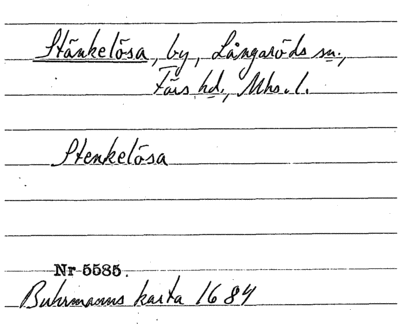 Stänkelösa, by, Långaröds sn.,
Färs hd., Mhs. l.
Stenkelösa
Nr 5585.
Buhrmanns karta 1684